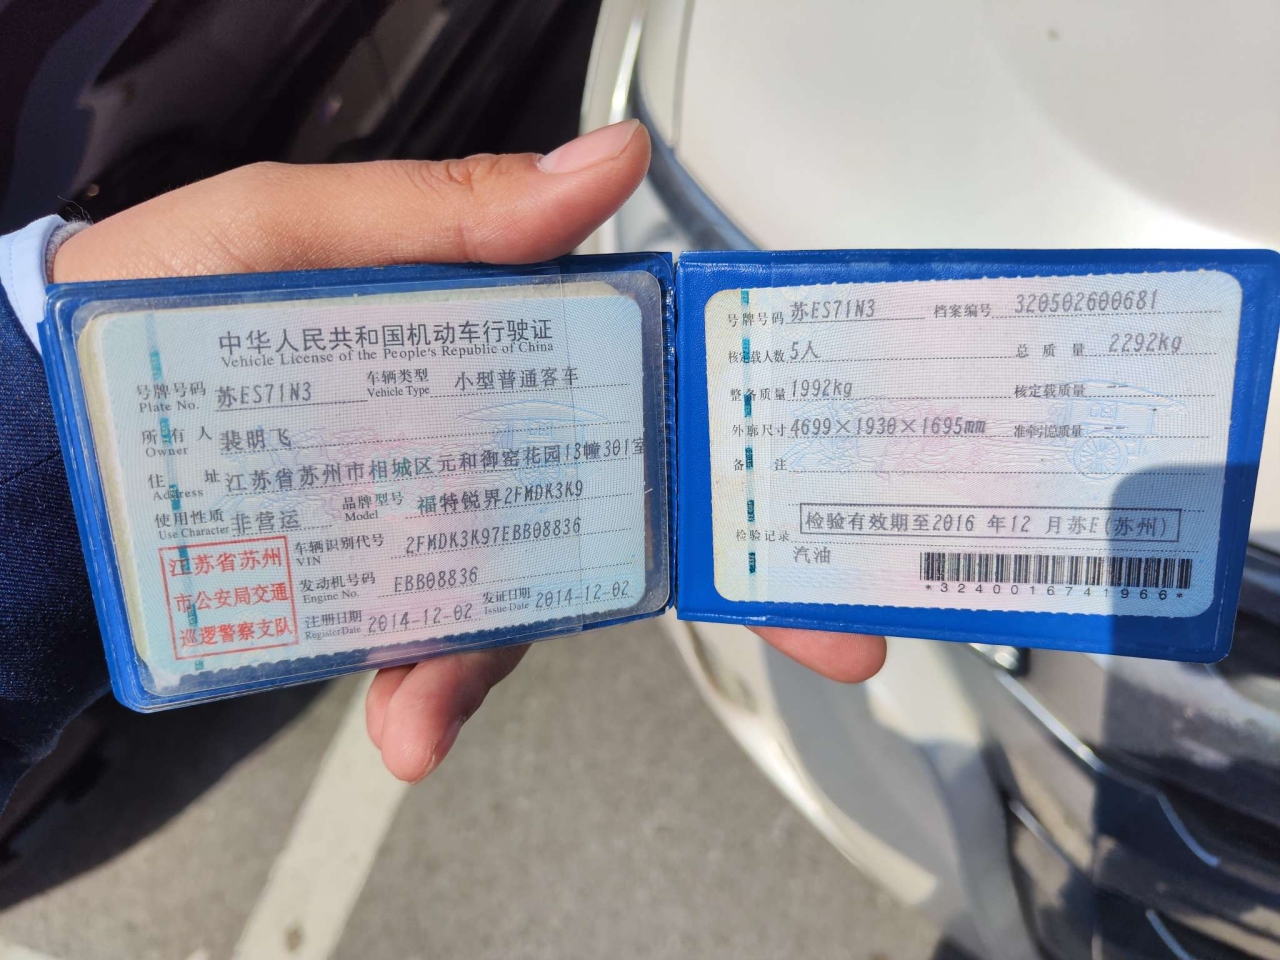 中华人民共和国机动车行驶证
Vehicle License of the People's Republic of China
号牌号码 Plate No. 苏ES71N3 车辆类型 Vehicle Type 小型普通客车
所有人 Owner 裴明飞
住址 Address 江苏省苏州市相城区元和御窑花园13幢301室
使用性质 Use Character 非营运 品牌型号 Model 福特锐界2FMDK3K9
车辆识别代号 VIN 2FMDK3K97EBB08836
发动机号码 Engine No. EBB08836
注册日期 Register Date 2014-12-02 发证日期 Issue Date 2014-12-02
江苏省苏州
市公安局交通
巡逻警察支队
号牌号码 苏ES71N3 档案编号 320502600681
核定载人数 5人 总质量 2292kg
整备质量 1992kg 核定载质量 --
外廓尺寸 4699×1930×1695mm 准牵引总质量 --
备注
检验记录 检验有效期至2016年12月苏E(苏州)
汽油
*3240016741966*